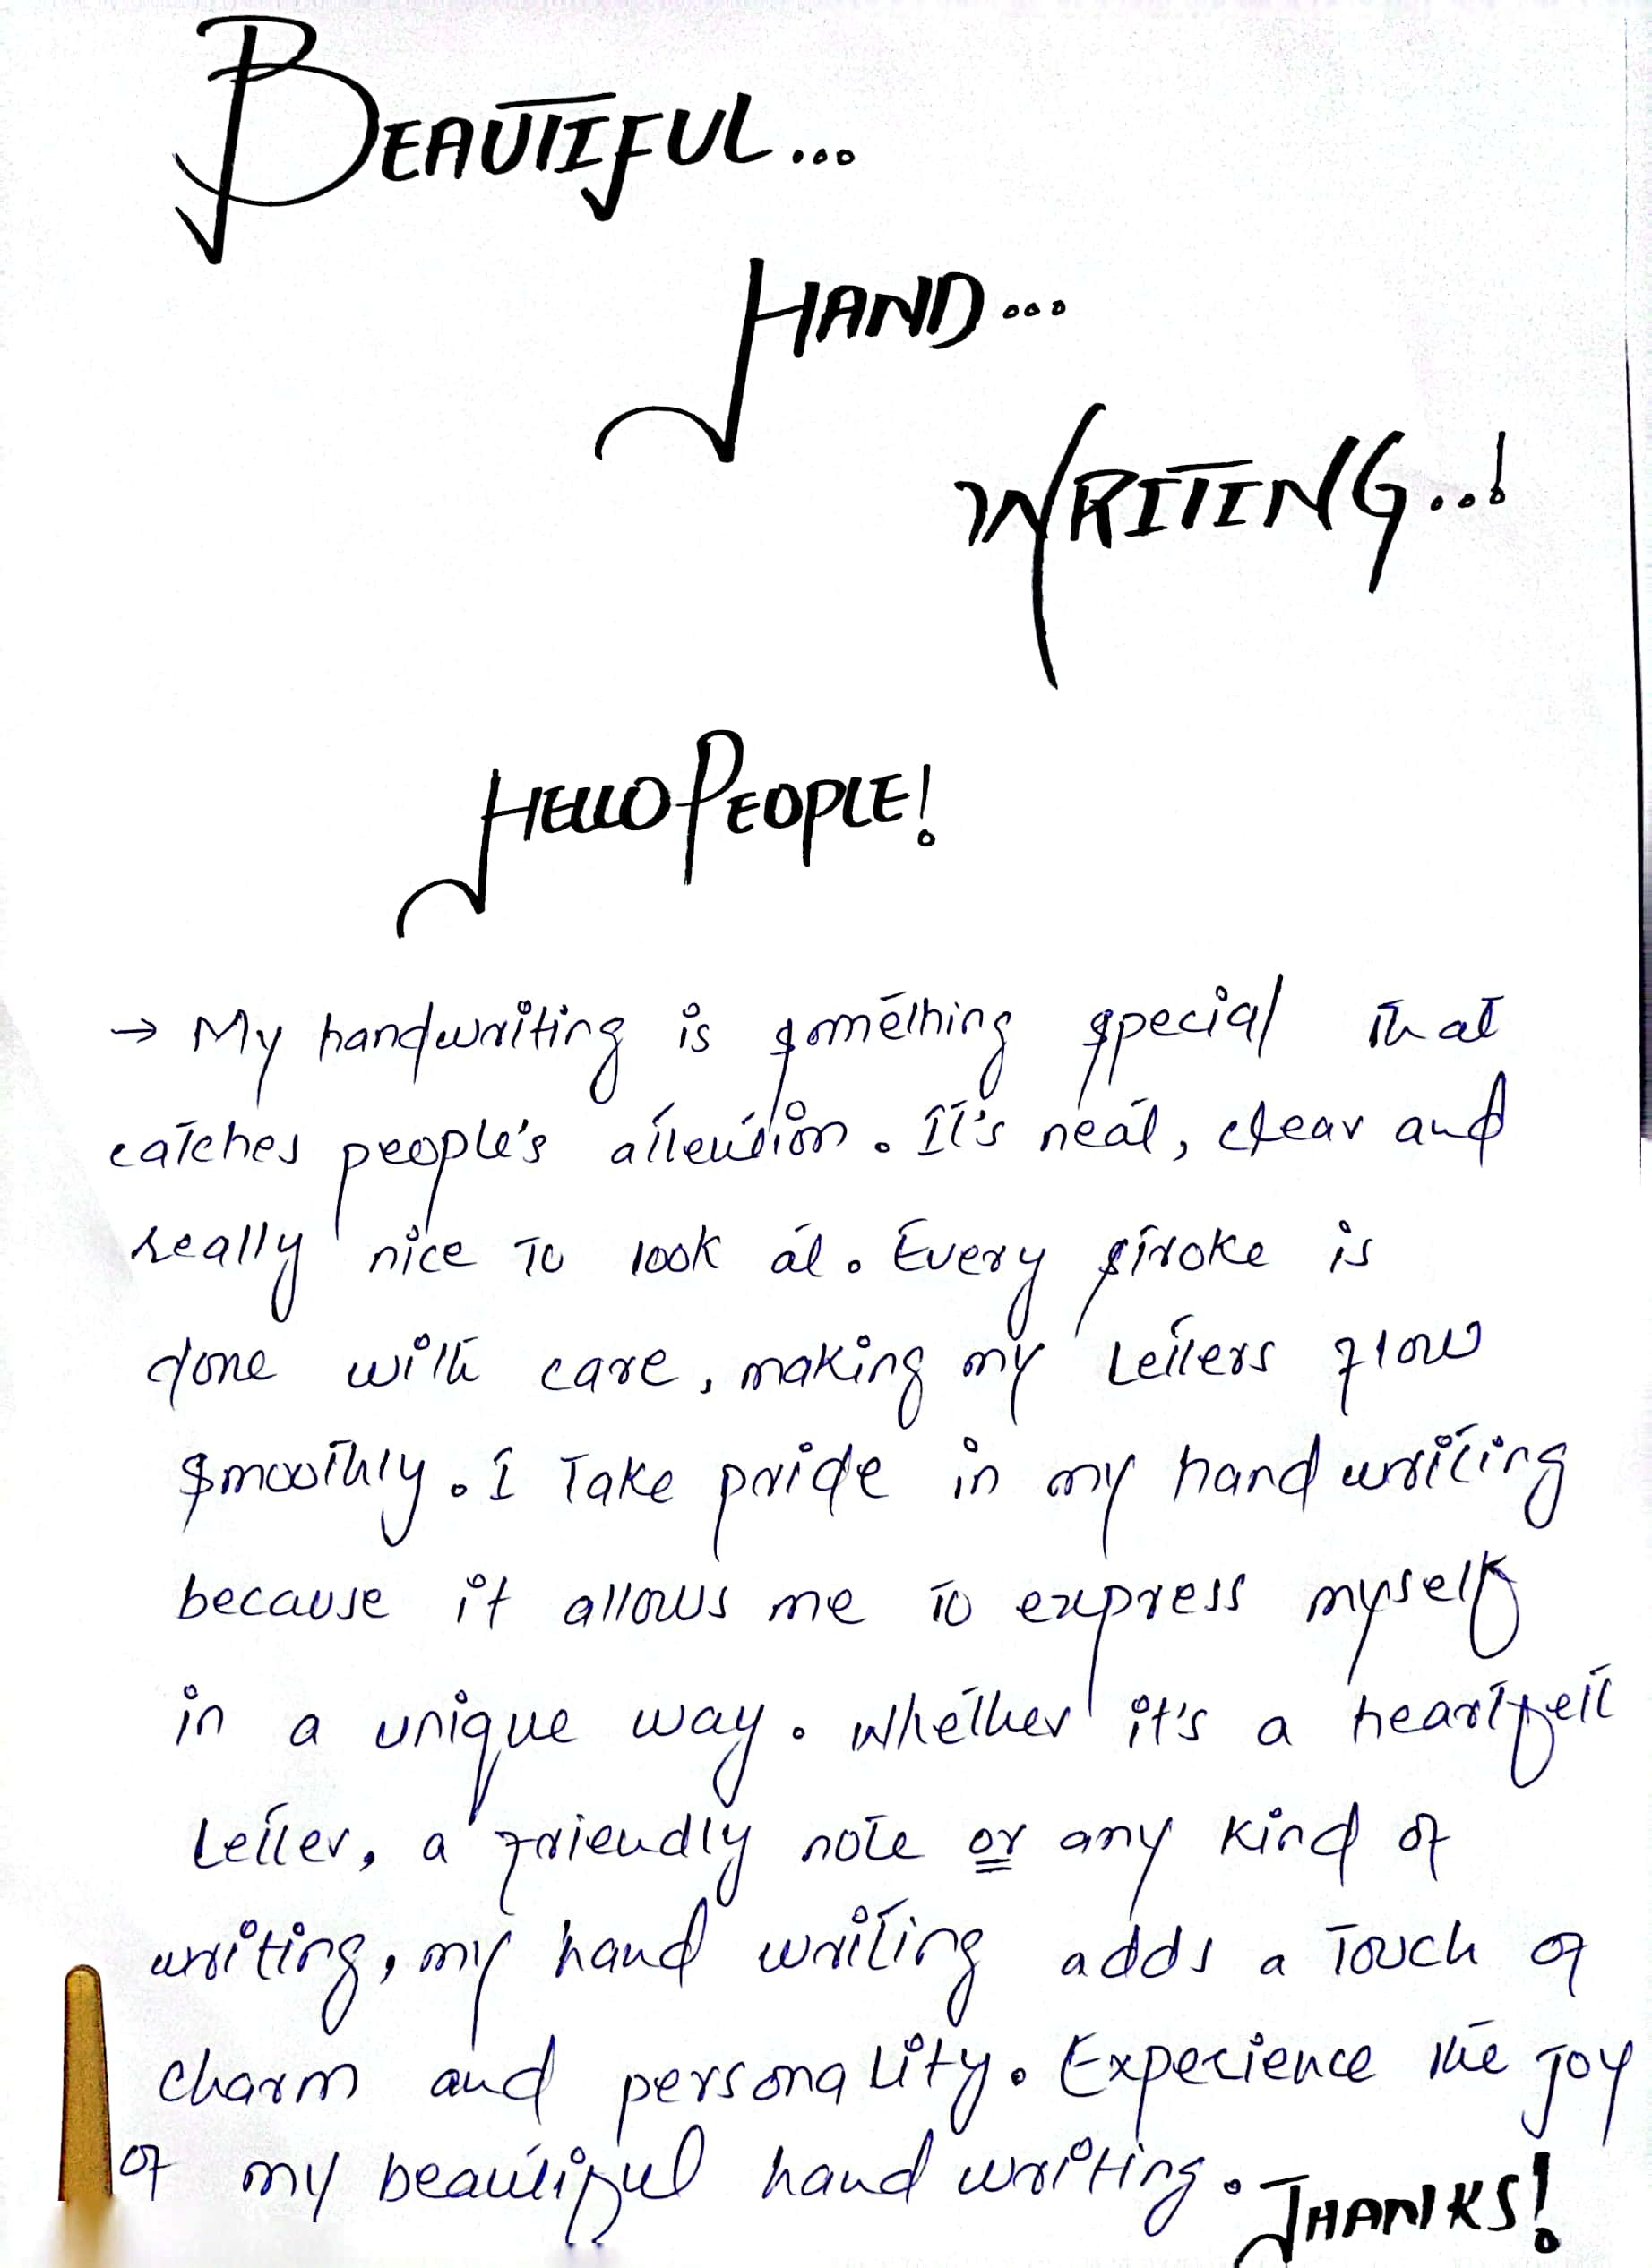 BEAUTIFUL...
HAND...
WRITING..!
HELLO PEOPLE!
→ My handwriting is something special that
catches people's attention. It's neat, clear and
really nice to look at. Every stroke is
done with care, making my letters flow
smoothly. I take pride in my hand writing
because it allows me to express myself
in a unique way. Whether it's a heartfelt
letter, a friendly note or any kind of
writing, my hand writing adds a touch of
charm and personality. Experience the joy
of my beautiful hand writing. THANKS!